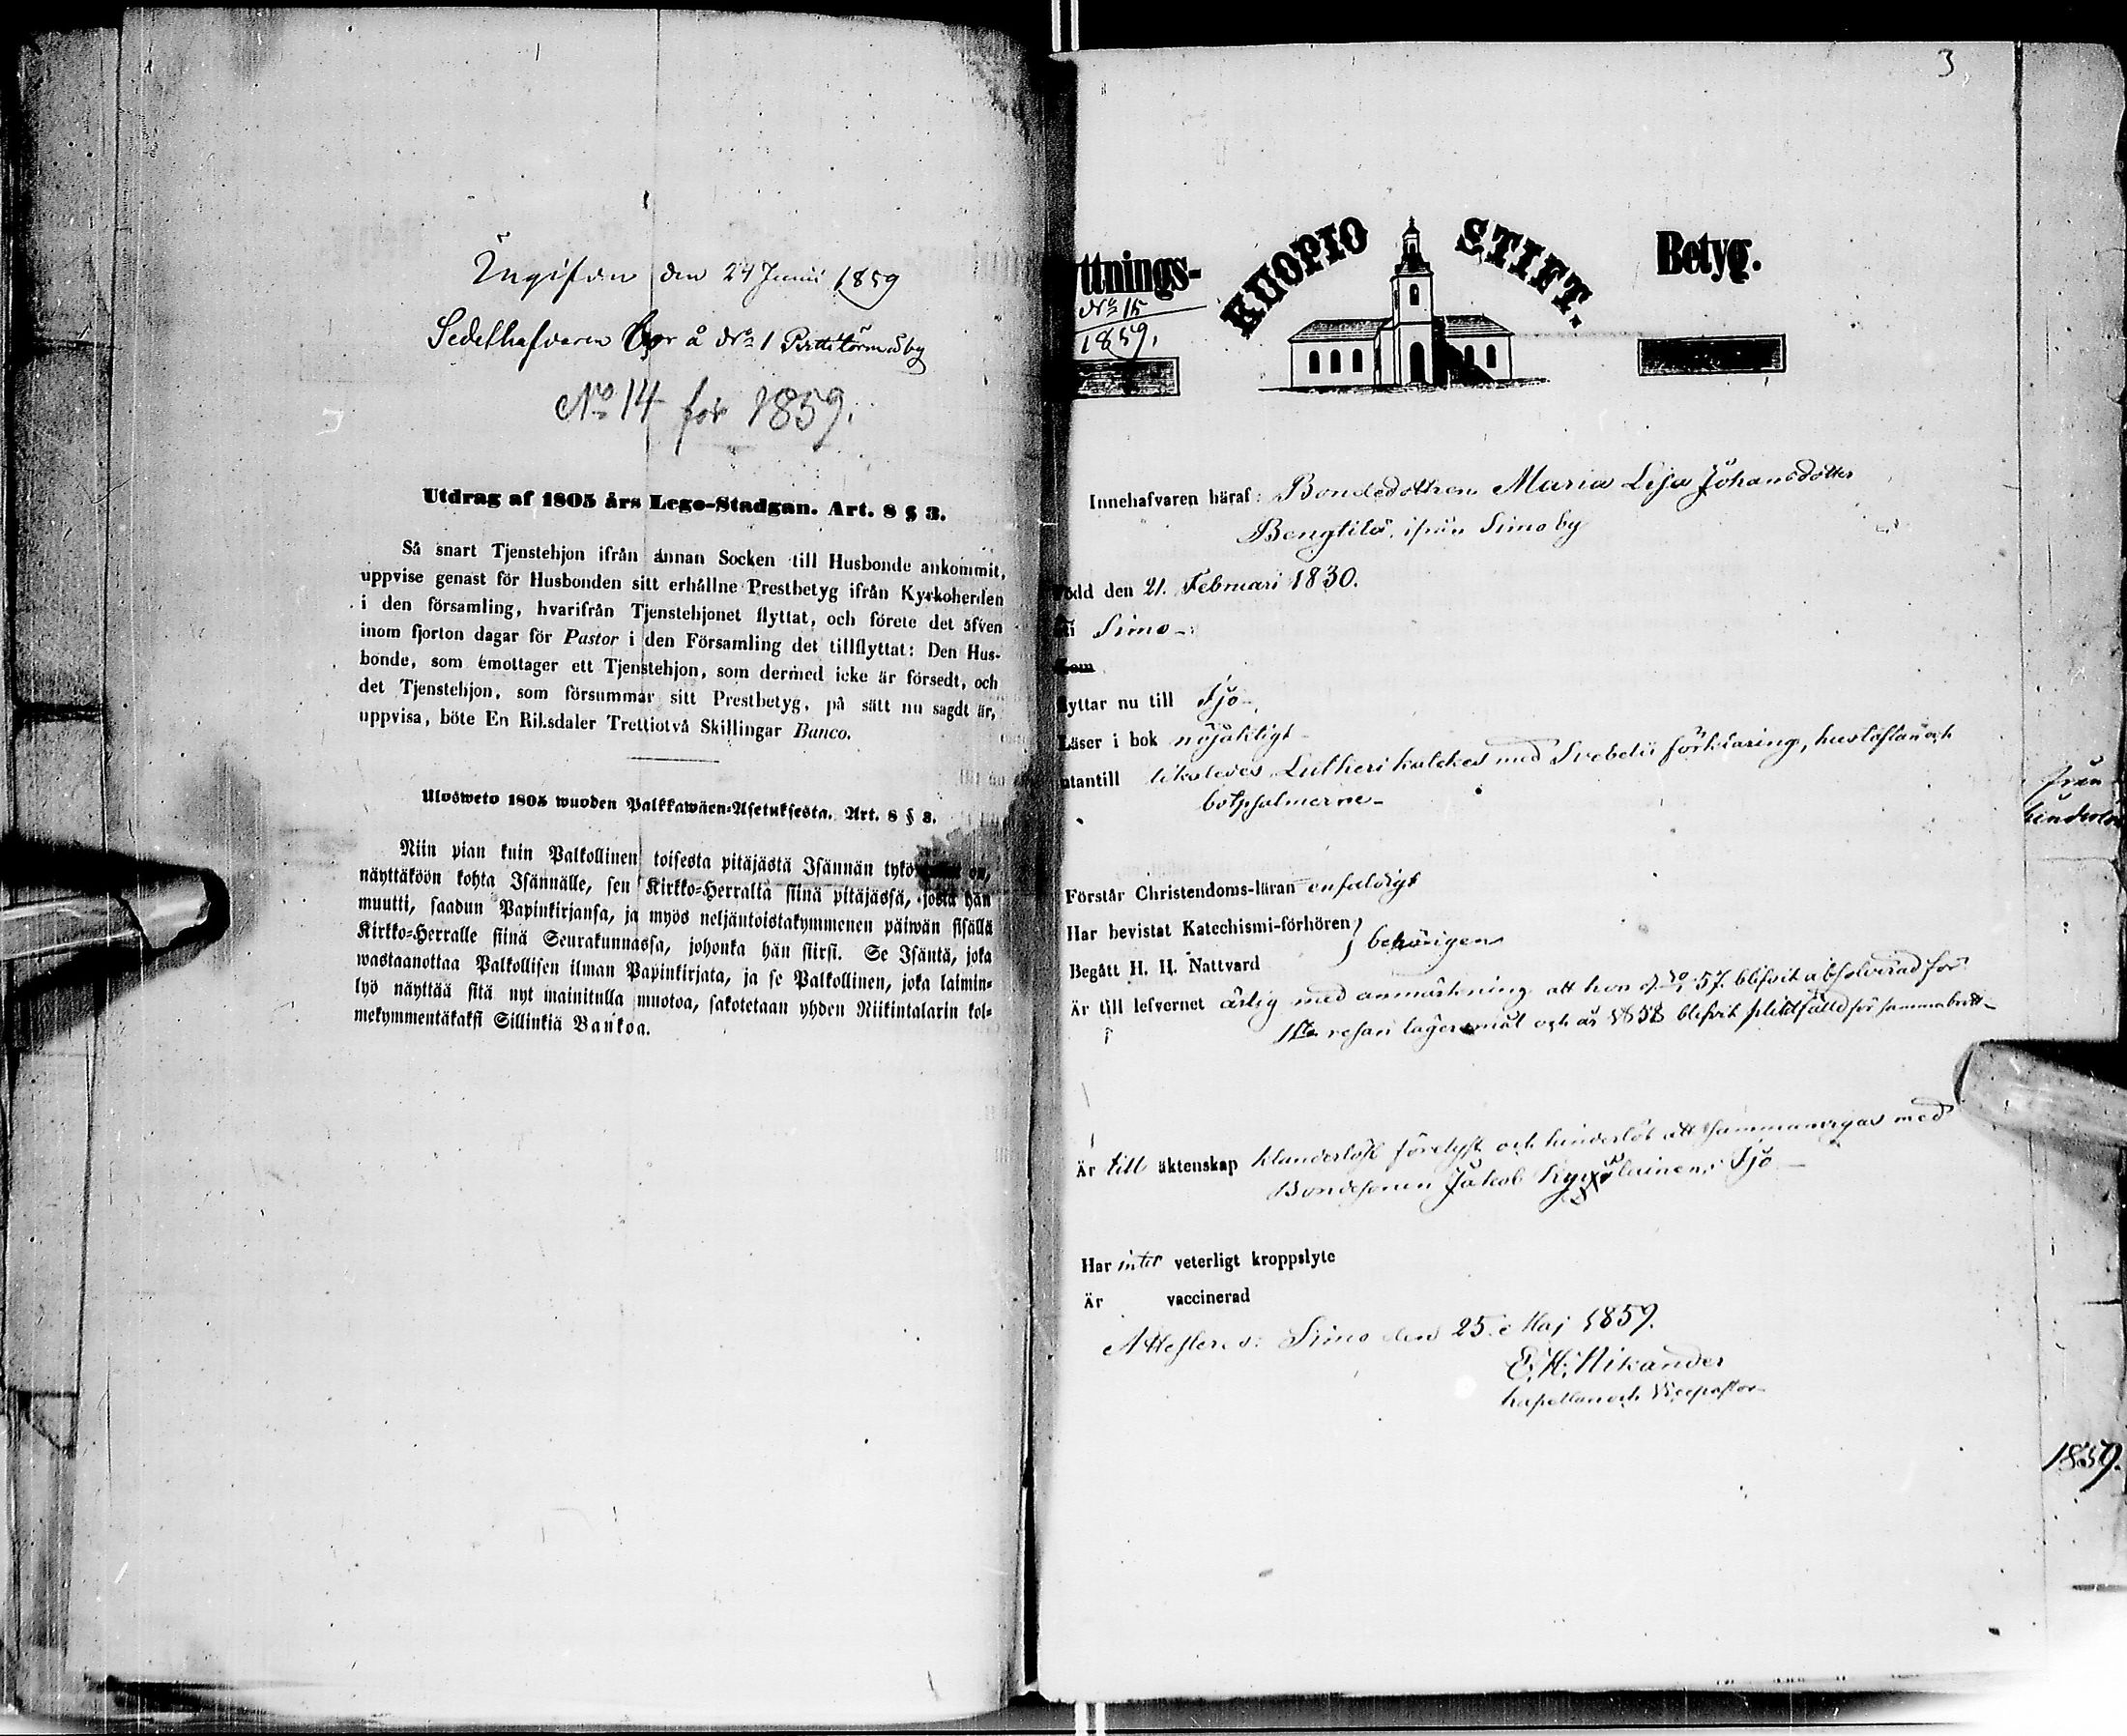 Ingifven den 24 Junii 1859
Sedelhafvaren bor å No 1 Pirttitörmä by
No 14 för 1859.
Utdrag af 1805 års Lego-Stadgan. Art. 8 § 3.
Så snart Tjenstehjon ifrån annan Socken till Husbonde ankommit,
uppvise genast för Husbonden sitt erhållne Prestbetyg ifrån Kyrkoherden
i den församling, hvarifrån Tjenstehjonet flyttat, och förete det äfven
inom fjorton dagar för Pastor i den Församling det tillflyttat: Den Hus-
bonde, som emottager ett Tjenstehjon, som dermed icke är försedt, och
det Tjenstehjon, som försummar sitt Prestbetyg, på sätt nu sagdt är,
uppvisa, böte En Riksdaler Trettiotvå Skillingar Banco.
Ulosweto 1805 wuoden Palkkawäen-Asetuksesta. Art. 8 § 3.
Niin pian kuin Palkollinen toisesta pitäjästä Isännän tykö on,
näyttäköön kohta Isännälle, sen Kirkko-Herralta siinä pitäjässä, josta hän
muutti, saadun Papinkirjansa, ja myös neljäntoistakymmenen päiwän sisällä
Kirkko-Herralle siinä Seurakunnassa, johonka hän siirsi. Se Isäntä, joka
wastaanottaa Palkollisen ilman Papinkirjata, ja se Palkollinen, joka laimin-
lyö näyttää sitä nyt mainitulla muotoa, sakotetaan yhden Riikintalarin kol-
mekymmentäkaksi Sillinkiä Bankoa.
3
ttnings- KUOPIO STIFT. Betyg.
No 15
1859.
Innehafvaren häraf: Bondedottren Maria Lisa Johansdotter
Bengtilä, ifrån Simo by
Född den 21. Februari 1830.
i Simo
Som
flyttar nu till Ijo
Läser i bok nöjaktigt
utantill likaledes Lutheri katekes med Svebelii förklaring, hustaflan och
botpsalmerne
Förstår Christendoms-läran enfaldigt
Har bevistat Katechismi-förhören } behörigen
Begått H. H. Nattvard
Är till lefvernet ärlig med anmärkning att hon d. 57. blifvit absolverad för
1sta resan lägersmål och år 1858 blifvit pliktfälld för samma brott
Är till äktenskap klanderlöst förelyst och hinderlös att sammanvigas med
Bondesonen Jakob i Ijo
Har intet veterligt kroppslyte
Är vaccinerad
Attesteras: Simo den 25. Maj 1859.
E. H. Nikander
kapellan och Vicepastor
från
hinderlös
1859.